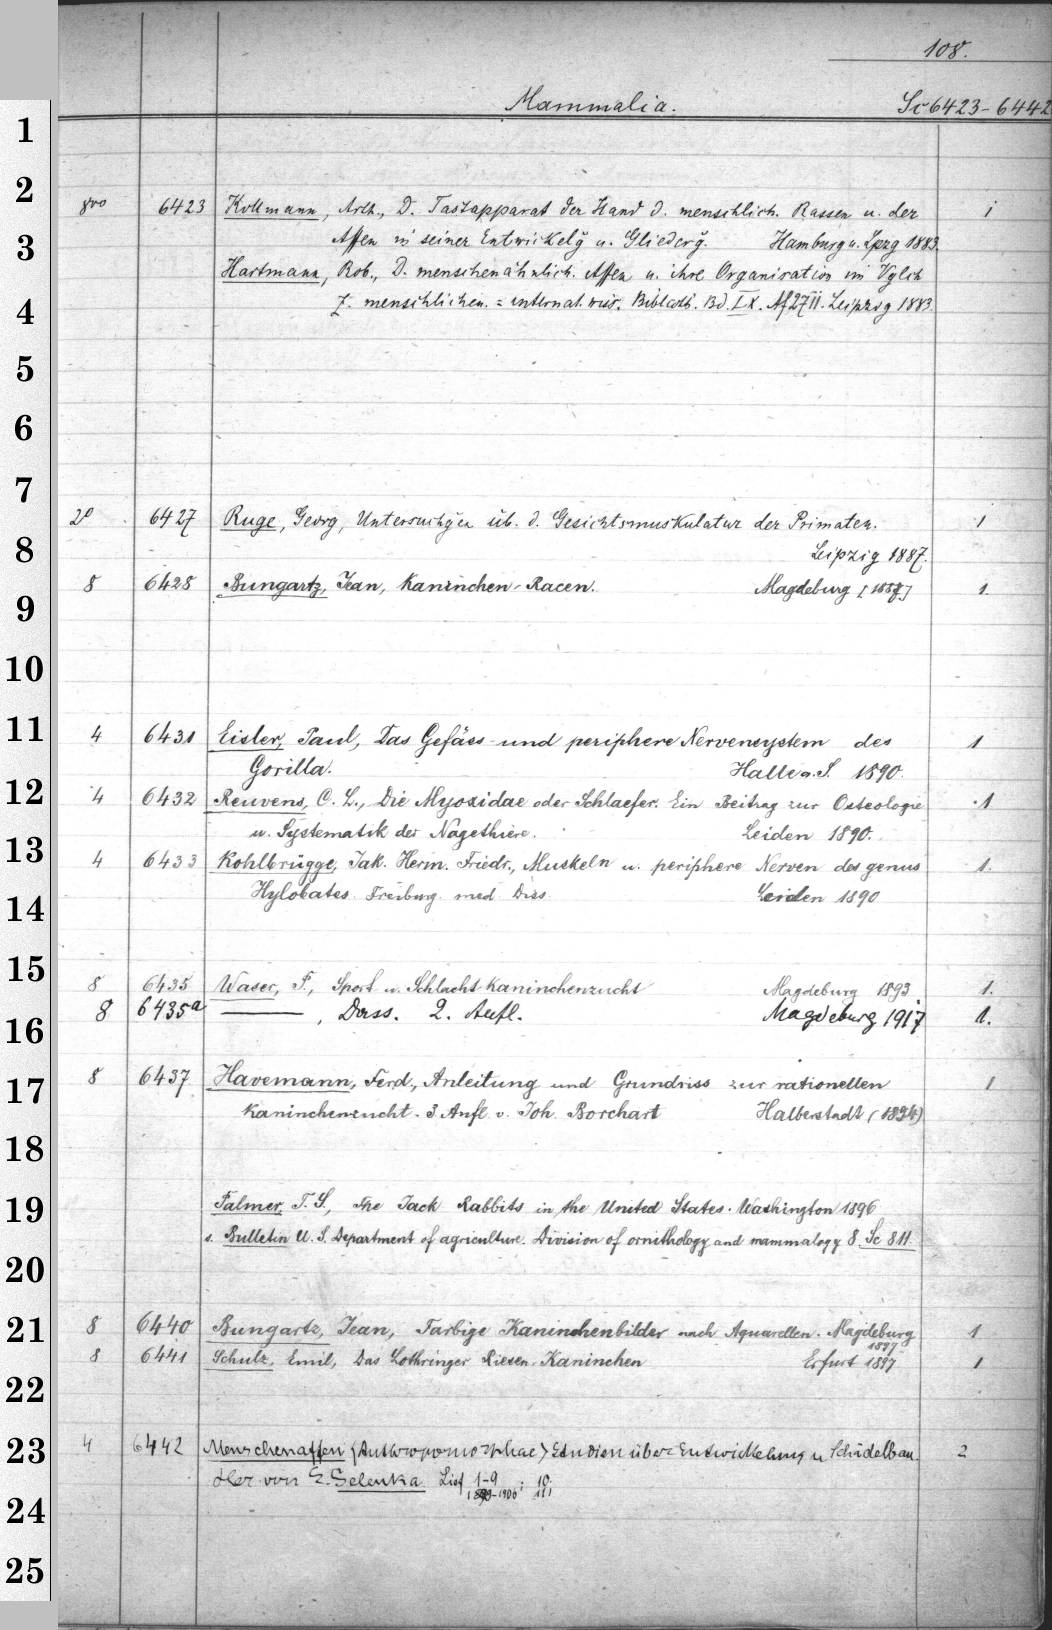 108.
Mammalia. Sc 6423-6442
1
2
8vo 6423 Kollmann, Arth., D. Tastapparat der Hand d. menschlich. Rassen u. der 1
3
Affen in seiner Entwickelg u. Gliederg. Hamburg u. Lpzg 1883.
Hartmann, Rob., D. menschenähnlich. Affen u. ihre Organisation im Vglch
4
z. menschlichen. = internat. wiss. Biblioth. Bd. IX. Af 27II. Leipzig 1883.
5
6
7
2° 6427 Ruge, Georg, Untersuchgen üb. d. Gesichtsmuskulatur der Primaten. 1
8
Leipzig 1887.
8 6428 Bungartz, Jean, Kaninchen-Racen. Magdeburg 1.
9
10
11
4 6431 Eisler, Paul, Das Gefäss- und periphere Nervensystem des 1
Gorilla. Halle a. S. 1890.
12
4 6432 Reuvens, C. L., Die Myoxidae oder Schlaefer. Ein Beitrag zur Osteologie 1
u. Systematik der Nagethiere. Leiden 1890.
13
4 6433 Kohlbrügge, Jak. Herm. Friedr., Muskeln u. periphere Nerven des genus 1.
Hylobates. Freiburg. med. Diss. Leiden 1890
14
15
8 6435 Waser, F., Sport u. Schlacht-Kaninchenzucht Magdeburg 1893 1.
8 6435a ———, Dass. 2. Aufl. Magdeburg 1917 1.
16
8 6437 Havemann, Ferd., Anleitung und Grundriss zur rationellen 1
17
Kaninchenzucht. 3 Aufl. v. Joh. Borchart Halberstadt (1894)
18
19
Palmer, T. S., The Jack Rabbits in the United States. Washington 1896
s. Bulletin U. S. Department of agriculture. Division of ornithology and mammalogy 8. Sc 811.
20
21
8 6440 Bungartz, Jean, Farbige Kaninchenbilder nach Aquarellen. Magdeburg 1
1897
8 6441 Schulz, Emil, Das Lothringer Riesen-Kaninchen Erfurt 1897 1
22
23
4 6442 Menschenaffen (Anthropomorphae) Studien über Entwickelung u Schädelbau. 2
Her von E. Selenka Lief 1-9; 10.
-1906
24
25